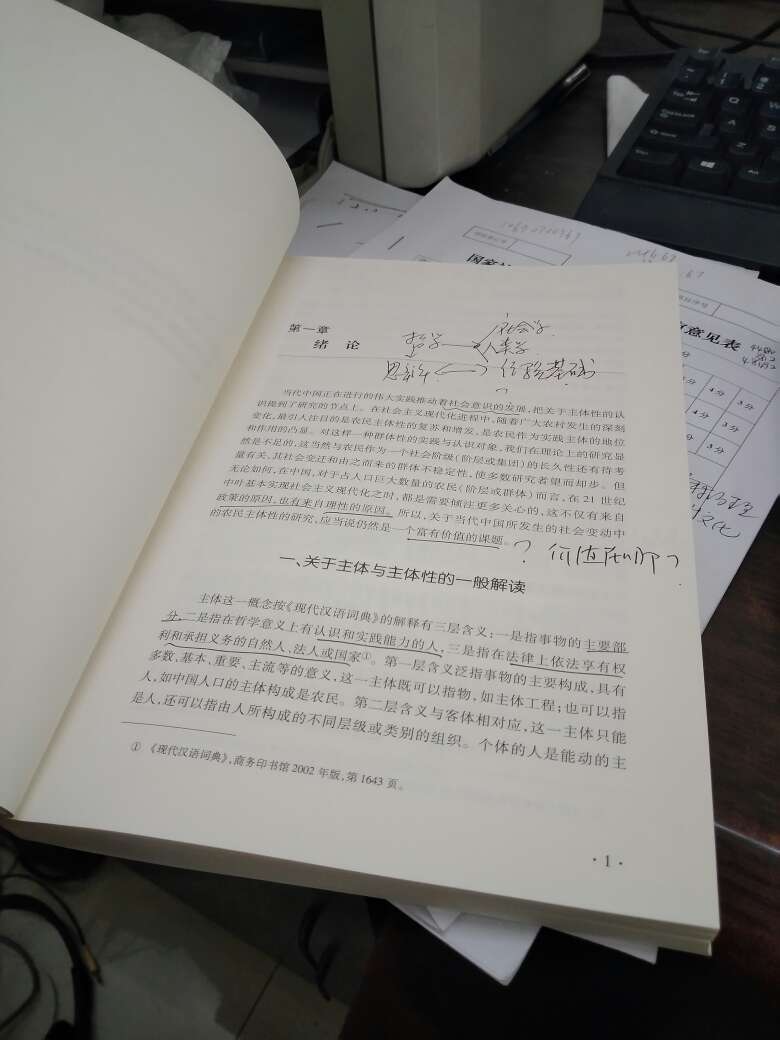 第一章
绪 论
哲学 社会学
人类学
思辨 经验基础
当代中国正在进行的伟大实践推动着社会意识的发展,把关于主体性的认
识提到了研究的节点上。在社会主义现代化进程中,随着广大农村发生的深刻
变化,最引人注目的是农民主体性的复苏和增发,是农民作为实践主体的地位
和作用的凸显。对这样一种群体性的实践与认识对象,我们在理论上的研究显
然是不足的,这当然与农民作为一个社会阶级(阶层或集团)的长久性还有待考
量有关,其社会变迁和由之而来的群体不稳定性,使多数研究者望而却步。但
无论如何,在中国,对于占人口巨大数量的农民(阶层或群体)而言,在 21 世纪
中叶基本实现社会主义现代化之时,都是需要倾注更多关心的,这不仅有来自
政策的原因,也有来自理性的原因。所以,关于当代中国所发生的社会变动中
的农民主体性的研究,应当说仍然是一个富有价值的课题。
? 价值在哪?
一、关于主体与主体性的一般解读
主体这一概念按《现代汉语词典》的解释有三层含义:一是指事物的主要部
分,二是指在哲学意义上有认识和实践能力的人,三是指在法律上依法享有权
利和承担义务的自然人、法人或国家①。第一层含义泛指事物的主要构成,具有
多数、基本、重要、主流等的意义,这一主体既可以指物,如主体工程;也可以指
人,如中国人口的主体构成是农民。第二层含义与客体相对应,这一主体只能
是人,还可以指由人所构成的不同层级或类别的组织。个体的人是能动的主
① 《现代汉语词典》,商务印书馆 2002 年版,第 1643 页。
·1·
国家社
意见表
4分
5分
4分
3分